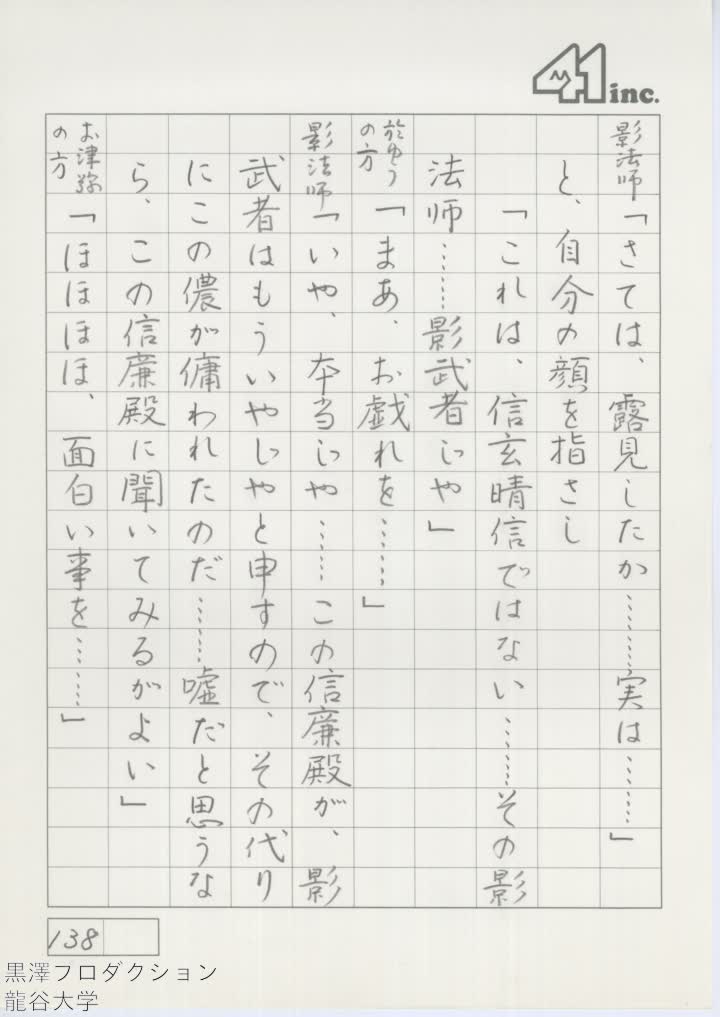 41 inc.
影法師「さては、露見したか………実は………」
と、自分の顔を指さし
「これは、信玄晴信ではない………その影
法師………影武者じや」
於ゆうの方「まあ、お戯れを………」
影法師「いや、本当じや………この信廉殿が、影
武者はもういやじやと申すので、その代り
にこの儂が傭われたのだ………嘘だと思うな
ら、この信廉殿に聞いてみるがよい」
お津弥の方「ほほほほ、面白い事を………」
138
黒澤プロダクション
龍谷大学